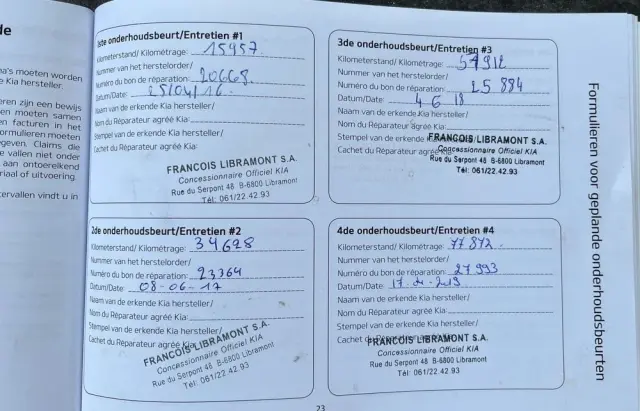 de
na's moeten worden
e Kia hersteller.
eren zijn een bewijs
en moeten samen
en facturen in het
ormulieren moeten
geven. Claims die
e vallen niet onder
aan ontoereikend
riaal of uitvoering.
tervallen vindt u in
1ste onderhoudsbeurt/Entretien #1
Kilometerstand/ Kilométrage: 15957
Nummer van het herstelorder/
Numéro du bon de réparation: 20668
Datum/Date: 25/04/16
Naam van de erkende Kia hersteller/
Nom du Réparateur agréé Kia:
Stempel van de erkende Kia hersteller/
Cachet du Réparateur agréé Kia:
FRANCOIS LIBRAMONT S.A.
Concessionnaire Officiel KIA
Rue du Serpont 48 B-6800 Libramont
Tél: 061/22.42.93
2de onderhoudsbeurt/Entretien #2
Kilometerstand/ Kilométrage: 34628
Nummer van het herstelorder/
Numéro du bon de réparation: 23364
Datum/Date: 08-06-17
Naam van de erkende Kia hersteller/
Nom du Réparateur agréé Kia:
Stempel van de erkende Kia hersteller/
Cachet du Réparateur agréé Kia:
FRANCOIS LIBRAMONT S.A.
Concessionnaire Officiel KIA
Rue du Serpont 48 B-6800 Libramont
Tél: 061/22.42.93
3de onderhoudsbeurt/Entretien #3
Kilometerstand/ Kilométrage: 57912
Nummer van het herstelorder/
Numéro du bon de réparation: 25884
Datum/Date: 4 6 18
Naam van de erkende Kia hersteller/
Nom du Réparateur agréé Kia:
Stempel van de erkende Kia hersteller/
Cachet du Réparateur agréé Kia:
FRANCOIS LIBRAMONT S.A.
Concessionnaire Officiel KIA
Rue du Serpont 48 B-6800 Libramont
Tél: 061/22.42.93
4de onderhoudsbeurt/Entretien #4
Kilometerstand/ Kilométrage: 77872
Nummer van het herstelorder/
Numéro du bon de réparation: 27993
Datum/Date:
Naam van de erkende Kia hersteller/
Nom du Réparateur agréé Kia:
Stempel van de erkende Kia hersteller/
Cachet du Réparateur agréé Kia:
FRANCOIS LIBRAMONT S.A.
Concessionnaire Officiel KIA
Rue du Serpont 48 B-6800 Libramont
Tél: 061/22.42.93
Formulieren voor geplande onderhoudsbeurten
23